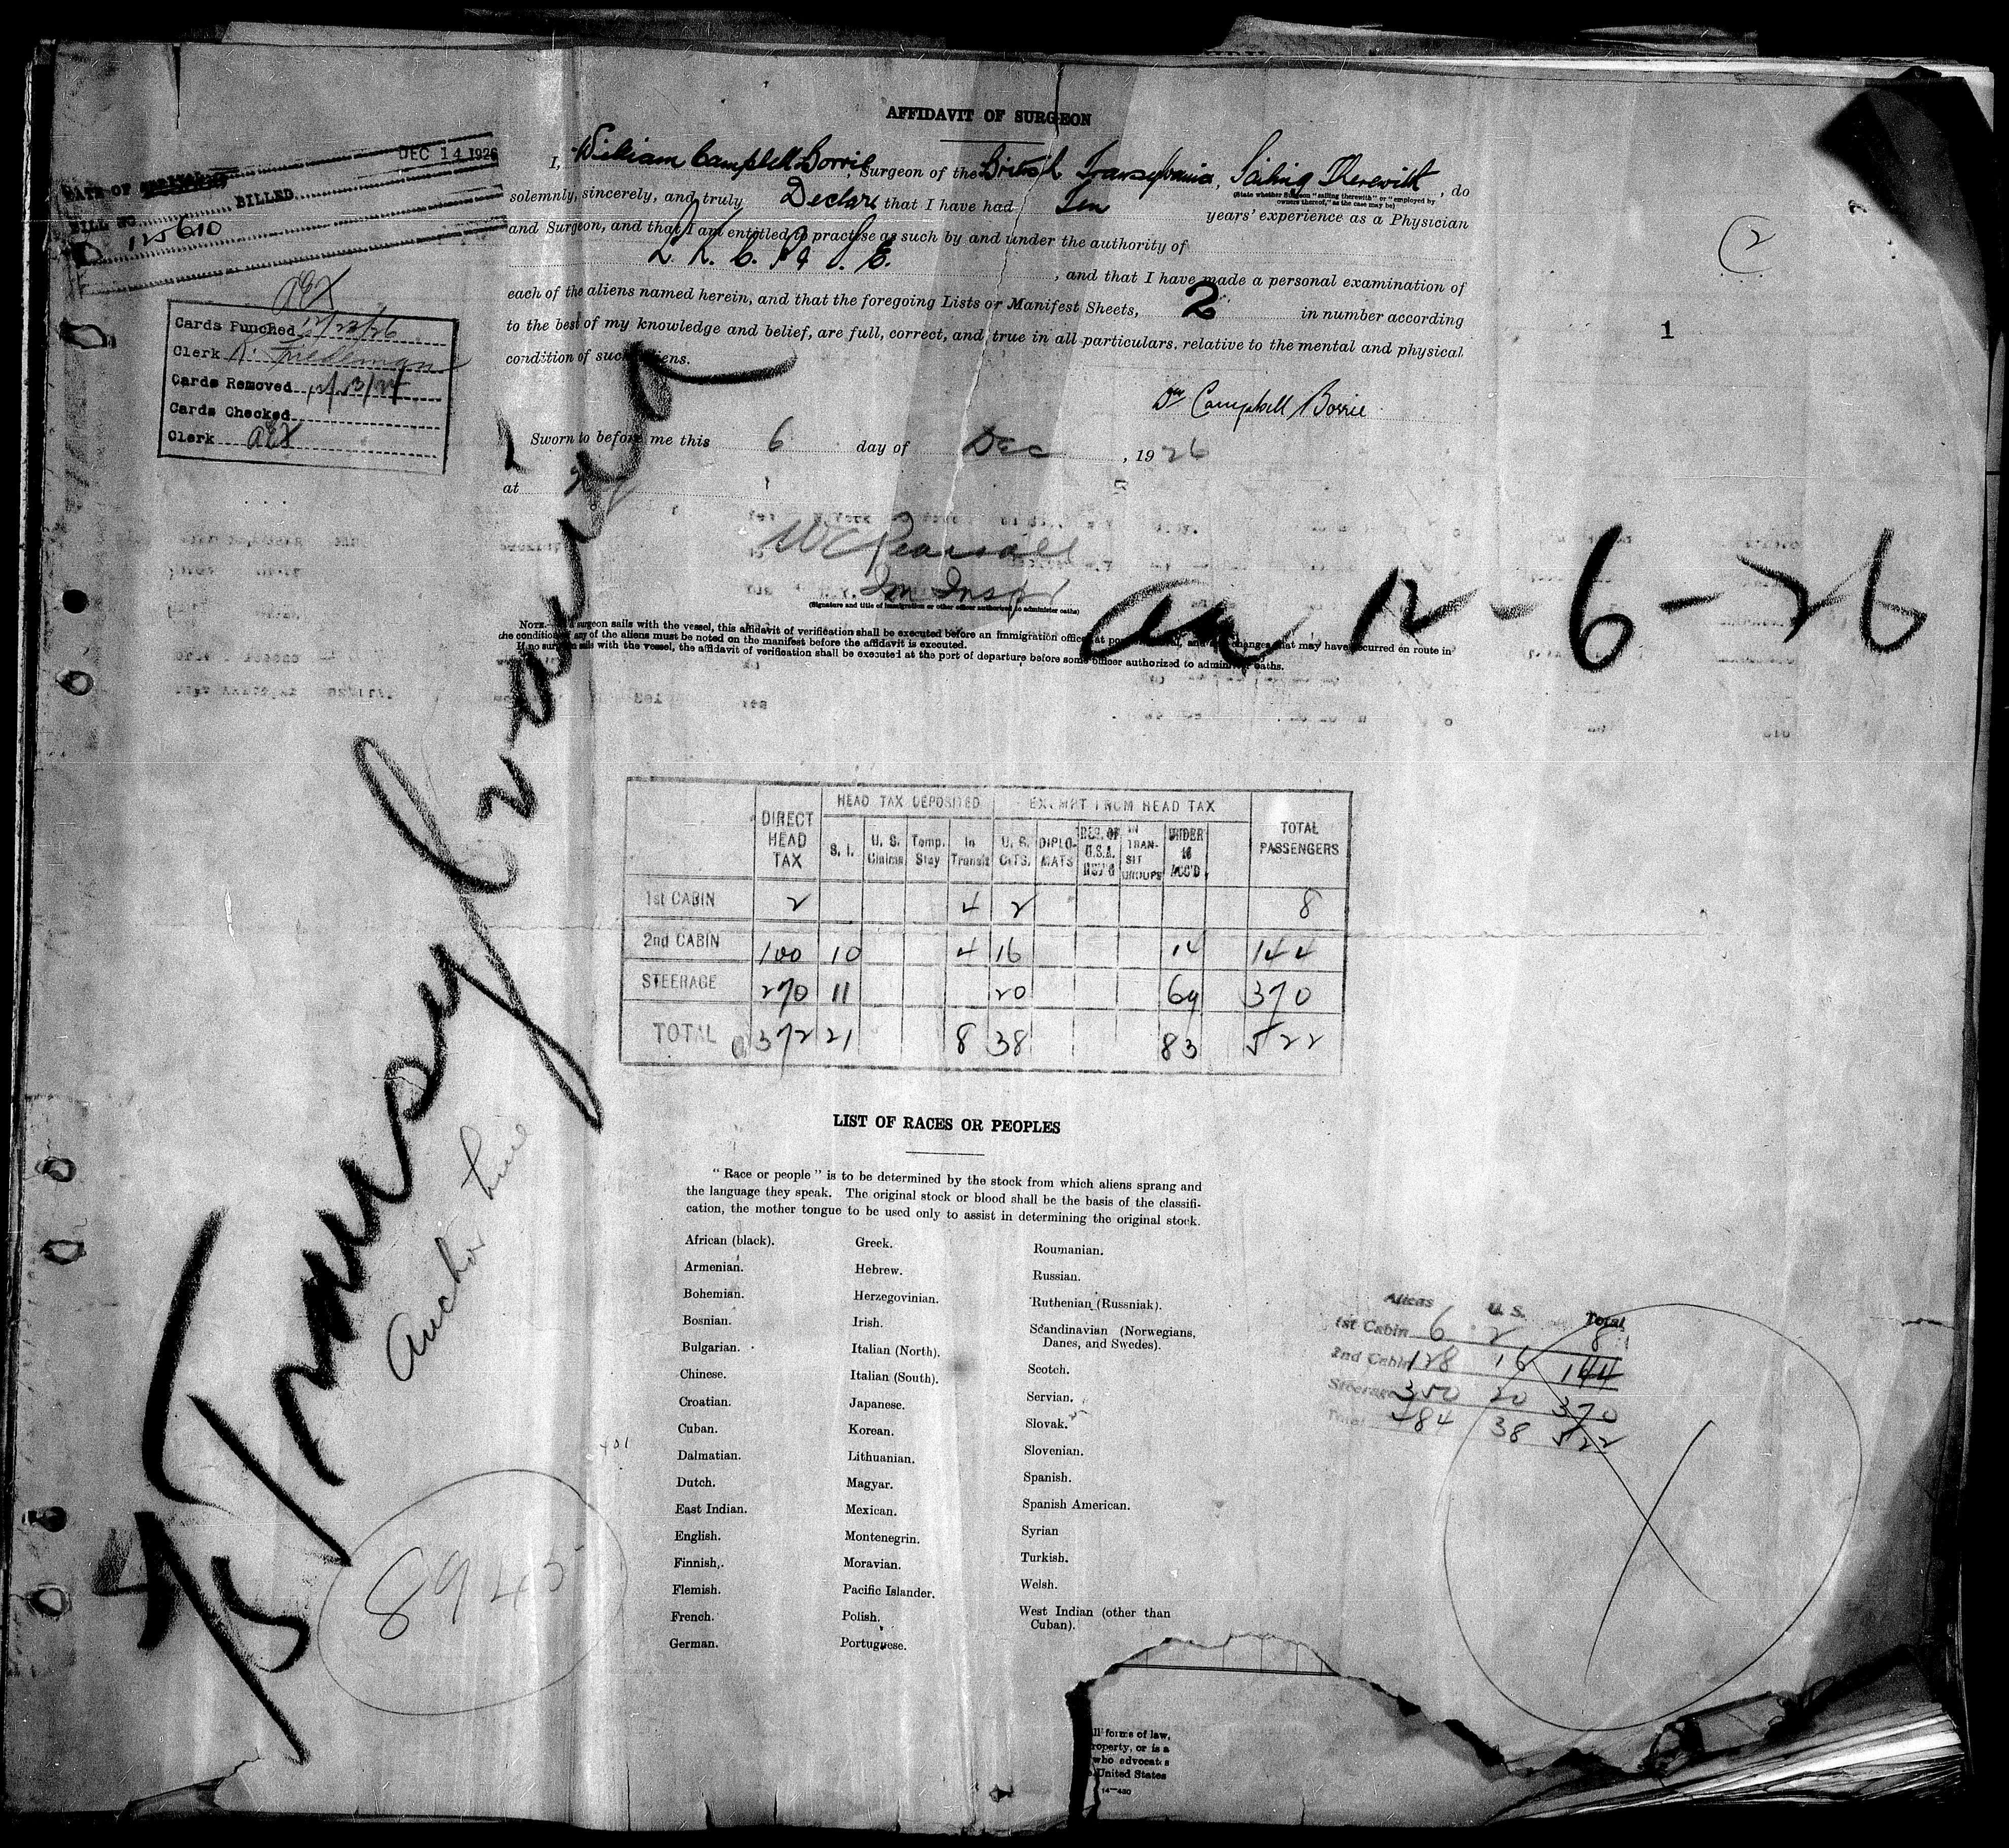 AFFIDAVIT OF SURGEON
I, William Campbell Borrie, Surgeon of the British Transylvania, Sailing Therewith, do
(State whether Surgeon "sailing therewith" or "employed by owners thereof," as the case may be)
solemnly, sincerely, and truly Declare that I have had Ten years' experience as a Physician
and Surgeon, and that I am entitled to practise as such by and under the authority of
, and that I have made a personal examination of
each of the aliens named herein, and that the foregoing Lists or Manifest Sheets, 2 in number according
to the best of my knowledge and belief, are full, correct, and true in all particulars, relative to the mental and physical
condition of such aliens.
Wm Campbell Borrie
Sworn to before me this 6 day of Dec, 1926
at
W C Pearsall
Im Inspr
(Signature and title of immigration or other officer authorized to administer oaths)
NOTE.—If a surgeon sails with the vessel, this affidavit of verification shall be executed before an immigration officer at port of arrival, and any changes that may have occurred en route in
the condition of any of the aliens must be noted on the manifest before the affidavit is executed.
If no surgeon sails with the vessel, the affidavit of verification shall be executed at the port of departure before some officer authorized to administer oaths.
DEC 14 1926
DATE OF
BILLED
BILL NO.
125610
aEX
Cards Punched 12/23/26
Clerk R. Friedemann
Cards Removed
Cards Checked
Clerk aEX
2
1
12-6-26
Transylvania
Anchor Line
8945
HEAD TAX DEPOSITED EXEMPT FROM HEAD TAX
DIRECT HEAD TAX S. I. U. S. Claims Temp. Stay In Transit U. S. CITS. DIPLOMATS RES. OF U.S.A. RET'G IN TRANSIT GROUPS UNDER 16 ACC'D TOTAL PASSENGERS
1st CABIN 2 4 2 8
2nd CABIN 100 10 4 16 14 144
STEERAGE 270 11 20 69 370
TOTAL 372 21 8 38 83 522
LIST OF RACES OR PEOPLES
"Race or people" is to be determined by the stock from which aliens sprang and
the language they speak. The original stock or blood shall be the basis of the classifi-
cation, the mother tongue to be used only to assist in determining the original stock.
African (black).
Armenian.
Bohemian.
Bosnian.
Bulgarian.
Chinese.
Croatian.
Cuban.
Dalmatian.
Dutch.
East Indian.
English.
Finnish,.
Flemish.
French.
German.
Greek.
Hebrew.
Herzegovinian.
Irish.
Italian (North).
Italian (South).
Japanese.
Korean.
Lithuanian.
Magyar.
Mexican.
Montenegrin.
Moravian.
Pacific Islander.
Polish.
Portuguese.
Roumanian.
Russian.
Ruthenian (Russniak).
Scandinavian (Norwegians,
Danes, and Swedes).
Scotch.
Servian.
Slovak.
Slovenian.
Spanish.
Spanish American.
Syrian
Turkish.
Welsh.
West Indian (other than
Cuban).
Aliens U. S. Total
1st Cabin 6 2 8
2nd Cabin 128 16 144
Steerage 350 20 370
Total 484 38 522
ll forms of law,
roperty, or is a
who advocates
United States
14—430